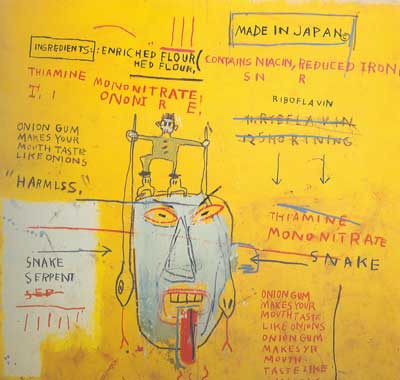 MADE IN JAPAN©
INGREDIENTS: : ENRICHED FLOUR(
HED FLOUR,
CONTAINS NIACIN, REDUCED IRON,
S N R
THIAMINE MONONITRATE,
I, I ONONI R E,
RIBOFLAVIN
RIBOFLAVIN
SHORINING
ONION GUM
MAKES YOUR
MOUTH TASTE
LIKE ONIONS
"HARMLSS,"
THIAMINE
MONONITRATE
SNAKE
SNAKE
SERPENT
SEP
ONION GUM
MAKES YOUR
MOUTH TASTE
LIKE ONIONS
ONION GUM
MAKES YR
MOUTH
TASTE LIKE